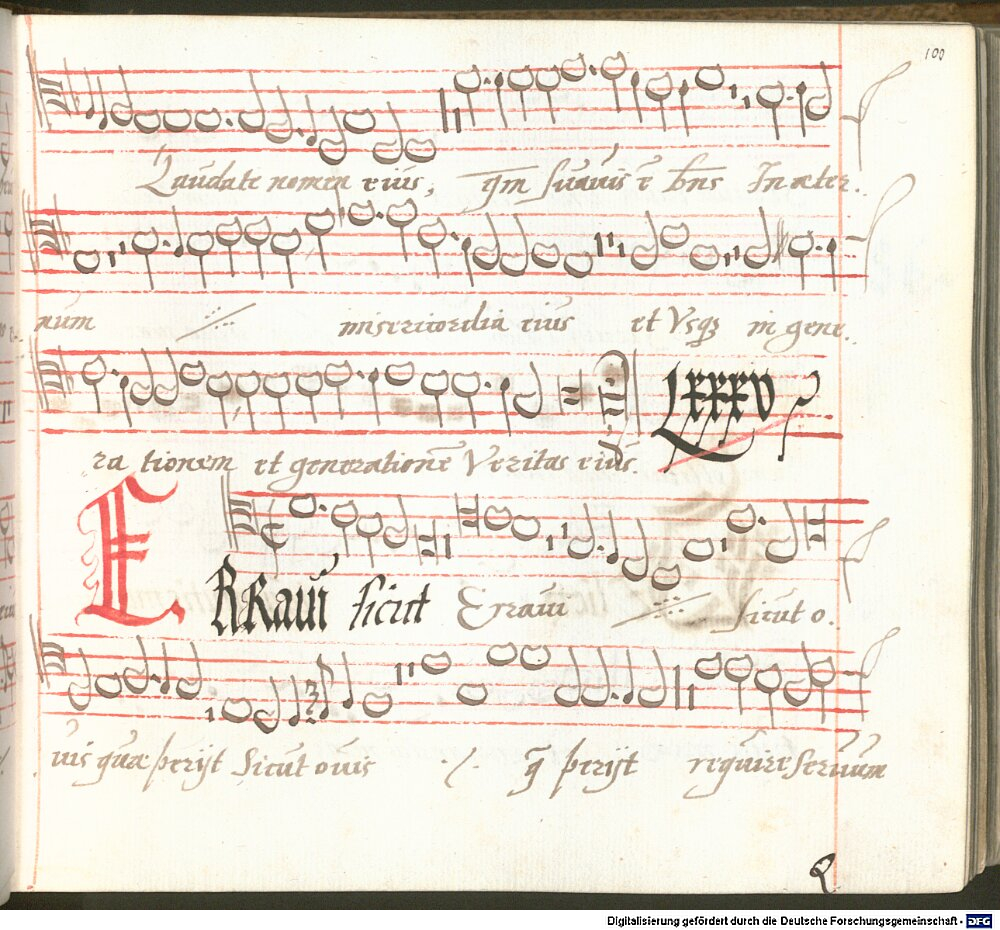 100
Laudate nomen eius, qm̄ suauis ē dn̄s In æter.
num misericordia eius et Vsq3 in gene.
LXXXV
ra tionem et generationē Veritas eius.
ERRaui sicut Erraui sicut o.
uis quæ perijt Sicut ouis q̄ perijt require seruum
Digitalisierung gefördert durch die Deutsche Forschungsgemeinschaft - DFG